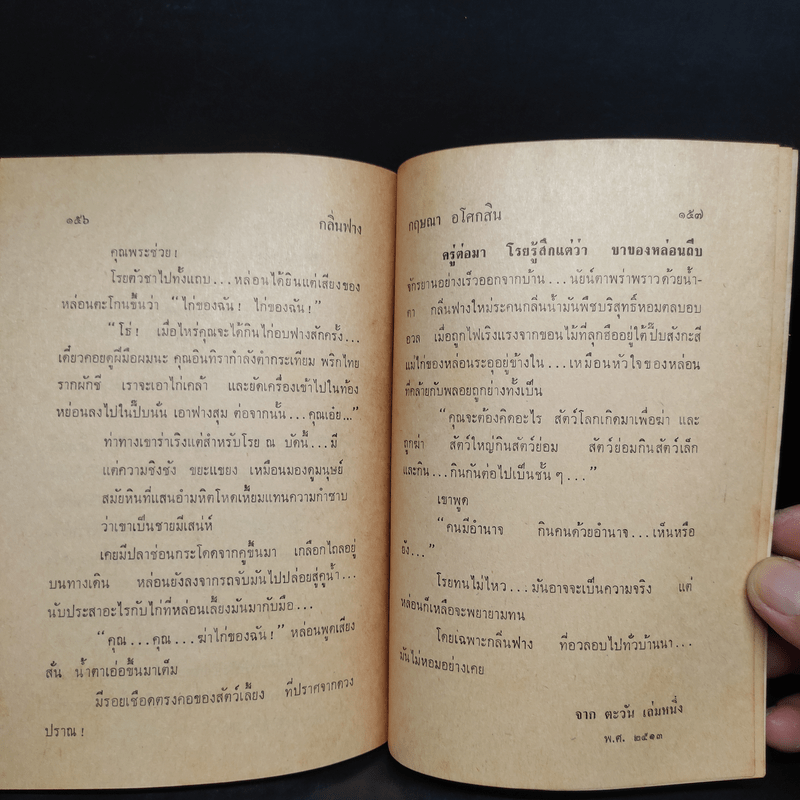 ๑๕๖
กลิ่นฟาง
คุณพระช่วย!
โรยตัวชาไปทั้งแถบ...หล่อนได้ยินแต่เสียงของ
หล่อนตะโกนขึ้นว่า “ไก่ของฉัน! ไก่ของฉัน!”
“โธ่! เมื่อไหร่คุณจะได้กินไก่อบฟางสักครั้ง...
เดี๋ยวคอยดูผีมือผมนะ คุณอินทิรากำลังตำกระเทียม พริกไทย
รากผักชี เราจะเอาไก่เคล้า และยัดเครื่องเข้าไปในท้อง
หย่อนลงไปในปี๊บนั่น เอาฟางสุม ต่อจากนั้น...คุณเอ๋ย...”
ท่าทางเขาร่าเริงแต่สำหรับโรย ณ บัดนี้...มี
แต่ความชิงชัง ขยะแขยง เหมือนมองดูมนุษย์
สมัยหินที่แสนอำมหิตโหดเหี้ยมแทนความกำซาบ
ว่าเขาเป็นชายมีเสน่ห์
เคยมีปลาช่อนกระโดดจากคูขึ้นมา เกลือกไถลอยู่
บนทางเดิน หล่อนยังลงจากรถจับมันไปปล่อยสู่คูน้ำ...
นับประสาอะไรกับไก่ที่หล่อนเลี้ยงมันมากับมือ...
“คุณ...คุณ...ฆ่าไก่ของฉัน!” หล่อนพูดเสียง
สั่น น้ำตาเอ่อขึ้นมาเต็ม
มีรอยเชือดตรงคอของสัตว์เลี้ยง ที่ปราศจากดวง
ปราณ!
กฤษณา อโศกสิน
๑๕๗
ครู่ต่อมา โรยรู้สึกแต่ว่า ขาของหล่อนถีบ
จักรยานอย่างเร็วออกจากบ้าน...นัยน์ตาพร่าพราวด้วยน้ำ-
ตา กลิ่นฟางใหม่ระคนกลิ่นน้ำมันพืชบริสุทธิ์หอมตลบอบ
อวล เมื่อถูกไฟเริงแรงจากขอนไม้ที่ลุกฮืออยู่ใต้ปี๊บสังกะสี
แม่ไก่ของหล่อนระอุอยู่ข้างใน...เหมือนหัวใจของหล่อน
ที่คล้ายกับพลอยถูกย่างทั้งเป็น
“คุณจะต้องคิดอะไร สัตว์โลกเกิดมาเพื่อฆ่า และ
ถูกฆ่า สัตว์ใหญ่กินสัตว์ย่อม สัตว์ย่อมกินสัตว์เล็ก
และกิน...กินกันต่อไปเป็นชั้น ๆ...”
เขาพูด
“คนมีอำนาจ กินคนด้วยอำนาจ...เห็นหรือ
ยัง...”
โรยทนไม่ไหว...มันอาจจะเป็นความจริง แต่
หล่อนก็เหลือจะพยายามทน
โดยเฉพาะกลิ่นฟาง ที่อวลอบไปทั่วบ้านนา...
มันไม่หอมอย่างเคย
จาก ตะวัน เล่มหนึ่ง
พ.ศ. ๒๕๑๓